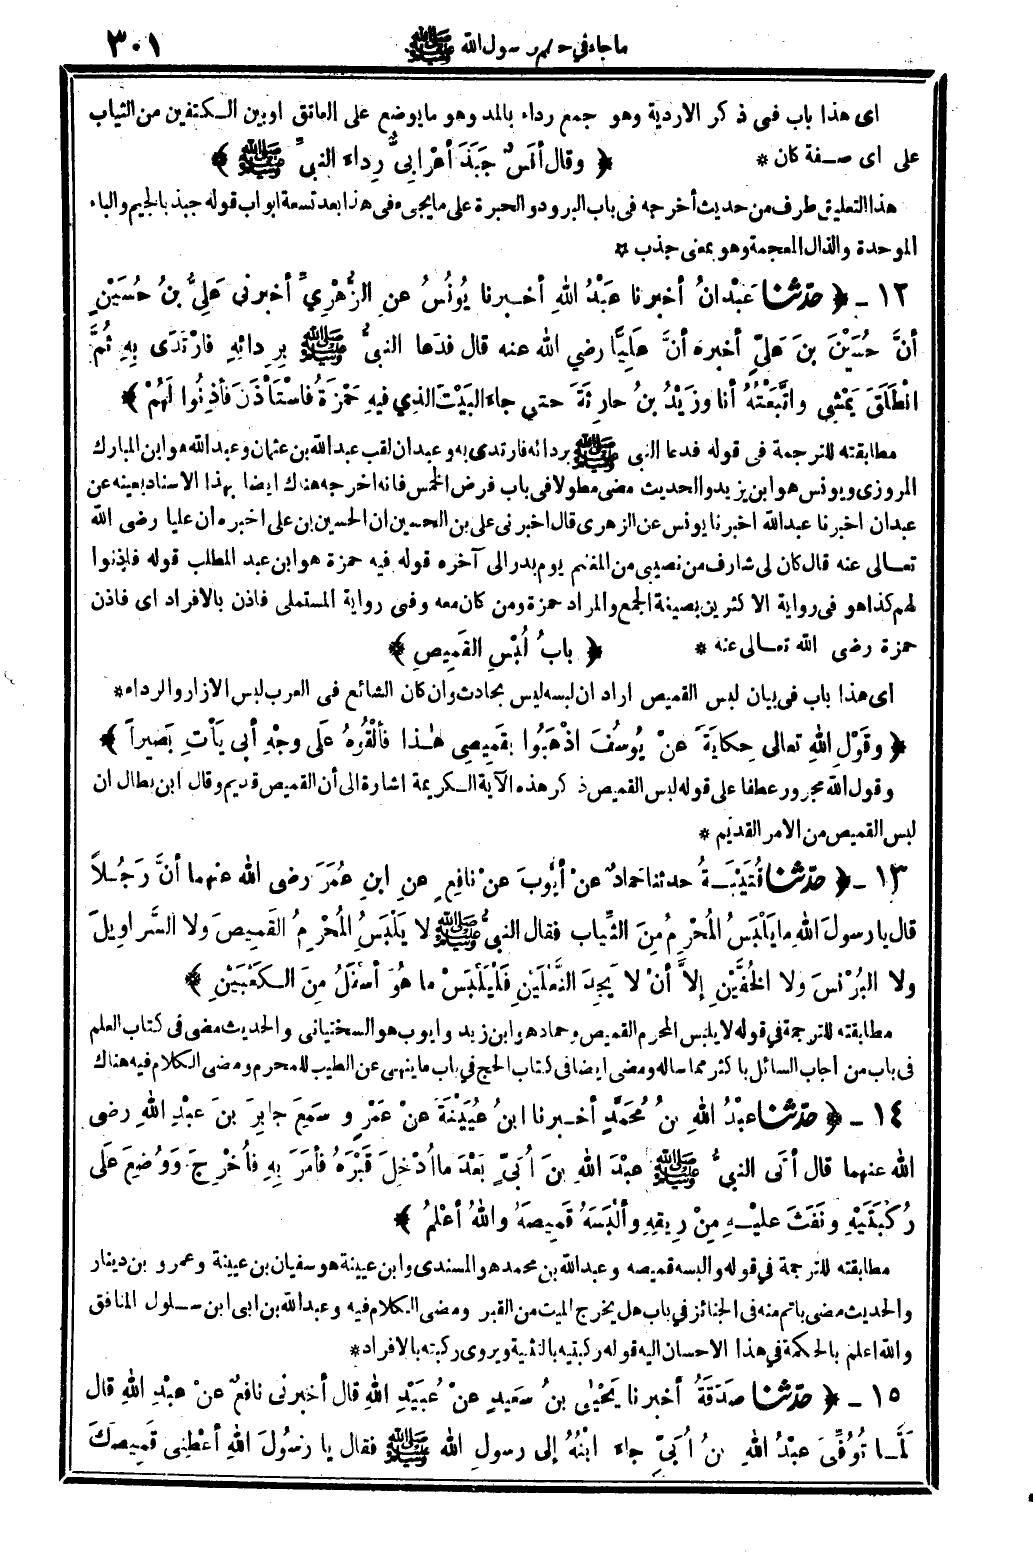 ما جاء في حلم رسول الله ﷺ ٣٠١
اى هذا باب فى ذكر الاردية وهو جمع رداء بالمد وهو ما يوضع على العاتق اوبين الكتفين من الثياب
على اى صفة كان *
﴿ وقال أنَسٌ جَبَذَ أعْرَابِيٌّ رِداءَ النبيِّ ﷺ ﴾
هذا التعليق طرف من حديث أخرجه فى باب البرود والحبرة على ما يجىء فى هذا بعد تسعة ابواب قوله جبذ بالجيم والباء
الموحدة والذال المعجمة وهو بمعنى جذب *
١٢ ـ ﴿ حدّثنا عَبْدانُ أخبرنا عبْدُ اللهِ أخـبرنا يُونُسُ عنِ الزُّهْرِيِّ أخبرنى عَلِيُّ بنُ حُسَيْنٍ
أنَّ حُسَيْنَ بنَ عَلِيٍّ أخبرهُ أنَّ عَلِيًّا رضي الله عنه قال فدَعا النبيُّ ﷺ بِرِدائِهِ فارْتَدَى بِهِ ثُمَّ
انْطَلَقَ يَمْشِي واتَّبَعْتُهُ أنا وزَيْدُ بنُ حارِثَةَ حتى جاءَ البَيْتَ الذي فيهِ حَمْزَةُ فاسْتَأْذَنَ فأذِنُوا لَهُمْ ﴾
مطابقته للترجمة فى قوله فدعا النبى ﷺ بردائه فارتدى به وعبدان لقب عبدالله بن عثمان وعبدالله هو ابن المبارك
المروزى ويونس هو ابن يزيد والحديث مضى مطولا فى باب فرض الخمس فانه اخرجه هناك ايضا بهذا الاسناد بعينه عن
عبدان اخبرنا عبدالله اخبرنا يونس عن الزهرى قال اخبرنى على بن الحسين ان الحسين بن على اخبره ان عليا رضى الله
تعـالى عنه قال كان لى شارف من نصيبى من المغنم يوم بدر الى آخره قوله فيه حمزة هو ابن عبد المطلب قوله فاذنوا
لهم كذا هو فى رواية الاكثرين بصيغة الجمع والمراد حمزة ومن كان معه وفى رواية المستملى فاذن بالافراد اى فاذن
حمزة رضى الله تعـالى عنه *
﴿ بابُ لُبْسِ القَمِيصِ ﴾
اى هذا باب فى بيان لبس القميص اراد ان لبسه ليس بحادث وان كان الشائع فى العرب لبس الازار والرداء *
﴿ وقَوْلِ اللهِ تعالى حِكايَةً عنْ يُوسُفَ اذْهَبُوا بِقَمِيصِى هٰـذا فألْقُوهُ علَى وجْهِ أبى يَأْتِ بَصِيراً ﴾
وقول الله مجرور عطفا على قوله لبس القميص ذكر هذه الآية الكريمة اشارة الى أن القميص قديم وقال ابن بطال ان
لبس القميص من الامر القديم *
١٣ ـ ﴿ حدّثنا قُتَيْبَـةُ حدثنا حمادٌ عنْ أيُّوبَ عنْ نافِعٍ عنِ ابنِ عُمَرَ رضى الله عنهما أنَّ رَجُـلاً
قال يا رسولَ اللهِ ما يَلْبَسُ المُحْرِمُ مِنَ الثِّيابِ فقال النبيُّ ﷺ لا يَلْبَسُ المُحْرِمُ القَمِيصَ ولا السَّراوِيلَ
ولا البُرْنُسَ ولا الخُفَّيْنِ إلاَّ أنْ لا يَجِدَ النَّعْلَيْنِ فَلْيَلْبَسْ ما هُوَ أسْفَلُ مِنَ الكَعْبَيْنِ ﴾
مطابقته للترجمة في قوله لا يلبس المحرم القميص وحماد هو ابن زيد وايوب هو السختيانى والحديث مضى فى كتاب العلم
فى باب من أجاب السائل باكثر مما ساله ومضى ايضا فى كتاب الحج في باب ما ينهى عن الطيب للمحرم ومضى الكلام فيه هناك
١٤ ـ ﴿ حدّثنا عبْدُ اللهِ بنُ مُحَمَّدٍ أخـبرنا ابنُ عُيَيْنَةَ عنْ عَمْرٍو سَمِعَ جابِرَ بنَ عبْدِ اللهِ رضى
الله عنهما قال أتَى النبيُّ ﷺ عبْدَ اللهِ بنَ أُبَيٍّ بَعْدَ ما أُدْخِلَ قَبْرَهُ فأمَرَ بِهِ فأُخْرِجَ ووُضِعَ علَى
رُكْبَتَيْهِ ونَفَثَ عليْـهِ مِنْ رِيقِهِ وألْبَسَهُ قَمِيصَهُ واللهُ أعْلَمُ ﴾
مطابقته للترجمة في قوله والبسه قميصه وعبدالله بن محمد هو المسندى وابن عيينة هو سفيان بن عيينة وعمرو بن دينار
والحديث مضى باتم منه فى الجنائز في باب هل يخرج الميت من القبر ومضى الكلام فيه وعبدالله بن ابى ابن سـلول المنافق
والله اعلم بالحكمة في هذا الاحسان اليه قوله ركبتيه بالتثنية ويروى ركبته بالافراد *
١٥ ـ ﴿ حدّثنا صدَقَةُ أخبرنا يَحْيٰى بنُ سَعِيدٍ عنْ عُبَيْدِ اللهِ قال أخبرنى نافِعٌ عنْ عبْدِ اللهِ قال
لَمَّـا تُوُفِّىَ عبْدُ اللهِ بنُ أُبَيٍّ جاءَ ابْنُهُ إلى رسولِ الله ﷺ فقال يا رسُولَ اللهِ أعْطِنِى قَمِيصَكَ